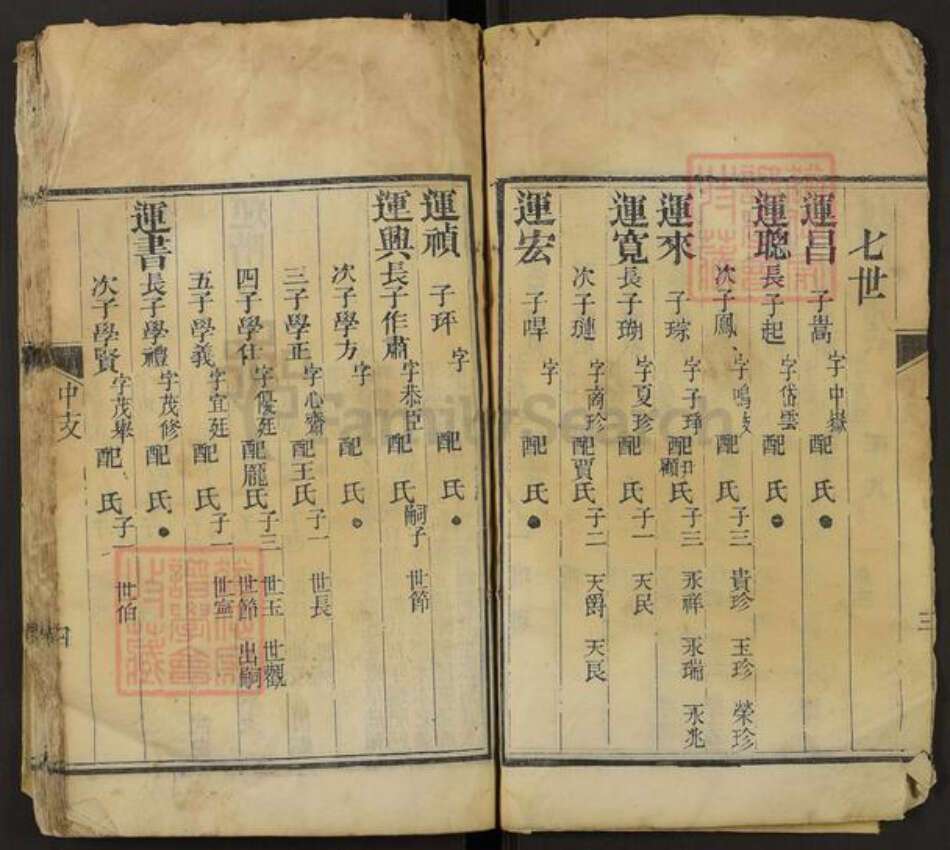 七世
運昌 子嵩 字中嶽 配 氏
運聰 長子起 字岱雲 配 氏
次子鳳 字鳴岐 配 氏 子三 貴珍 玉珍 榮珍
運來 子琮 字子琤 配 顧 氏 子三 永祥 永瑞 永兆
運寬 長子瑚 字夏珍 配 氏 子一 天民
次子璉 字商珍 配賈氏 子二 天爵 天民
運宏 子㖔 字 配 氏
三
運禎 子玶 字 配 氏
運興 長子作肅 字恭臣 配 氏 嗣子 世節
次子學方 字 配 氏
三子學正 字心齋 配王氏 子一 世長
四子學仕 字優廷 配龐氏 子三 世玉 世觀 世節 出嗣
五子學義 字宜廷 配 氏 子一 世寧
運書 長子學禮 字茂修 配 氏
次子學賢 字茂舉 配 氏 子一 世伯
中支
四
FamilySearch